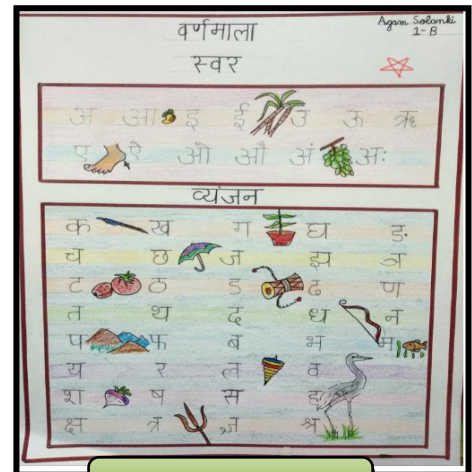 Agam Solanki
1-B
वर्णमाला
स्वर
अ आ इ ई उ ऊ ऋ
ए ऐ ओ औ अं अः
व्यंजन
क ख ग घ ङ
च छ ज झ ञ
ट ठ ड ढ ण
त थ द ध न
प फ ब भ म
य र ल व
श ष स ह
क्ष त्र ज्ञ श्र